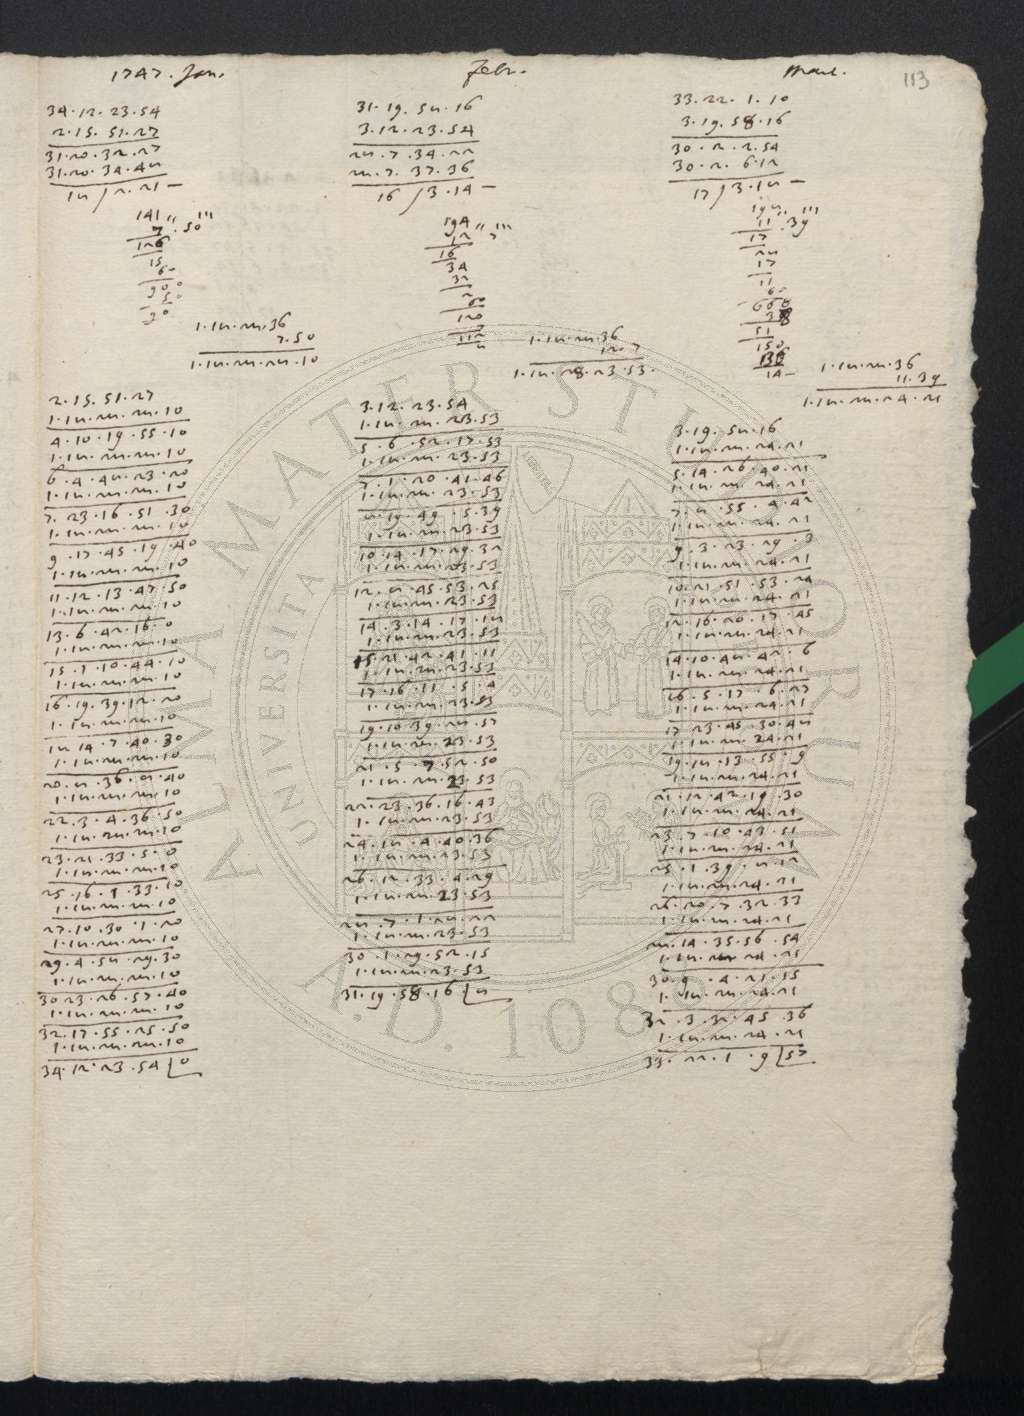 1747. Jan.
34.12.23.54
2.15.51.27
31.20.32.27
31.20.34.48
18 / 2.21 —
141
7 ''. 50 '''
126
15
60
900
50
90
1.18.28.36
7.50
1.18.28.28.10
2.15.51.27
1.18.28.28.10
4.10.19.55.10
1.18.28.28.10
6.4.48.23.20
1.18.28.28.10
7.23.16.51.30
1.18.28.28.10
9.17.45.19.40
1.18.28.28.10
11.12.13.47.50
1.18.28.28.10
13.6.42.16.0
1.18.28.28.10
15.1.10.44.10
1.18.28.28.10
16.19.39.12.20
1.18.28.28.10
18.14.7.40.30
1.18.28.28.10
20.8.36.8.40
1.18.28.28.10
22.3.4.36.50
1.18.28.28.10
23.21.33.5.0
1.18.28.28.10
25.16.1.33.10
1.18.28.28.10
27.10.30.1.20
1.18.28.28.10
29.4.58.29.30
1.18.28.28.10
30.23.26.57.40
1.18.28.28.10
32.17.55.25.50
1.18.28.28.10
34.12.23.54 | 0
Febr.
31.19.58.16
3.12.23.54
28.7.34.22
28.7.37.36
16 / 3.14 —
194
12 '' 7 '''
16
34
32
2
60
120
7
112
8
1.18.28.36
12.7
1.18.28.23.53.
3.12.23.54
1.18.28.23.53
5.6.52.17.53
1.18.28.23.53
7.1.20.41.46
1.18.28.23.53
8.19.49.5.39
1.18.28.23.53
10.14.17.29.32
1.18.28.23.53
12.8.45.53.25
1.18.28.23.53
14.3.14.17.18
1.18.28.23.53
15.21.42.41.11
1.18.28.23.53
17.16.11.5.4
1.18.28.23.53
19.10.39.28.57
1.18.28.23.53
21.5.7.52.50
1.18.28.23.53
22.23.36.16.43
1.18.28.23.53
24.18.4.40.36
1.18.28.23.53
26.12.33.4.29
1.18.28.23.53
28.7.1.28.22
1.18.28.23.53
30.1.29.52.15
1.18.28.23.53
31.19.58.16 | 8
113
33.22.1.10
3.19.58.16
30.2.2.54
30.2.6.12
17 / 3.18 —
198
11 ''. 39 '''
17
28
17
11
60
660
51
150
136
14 —
1.18.28.36
11.39
1.18.28.24.21
3.19.58.16
1.18.28.24.21
5.14.26.40.21
1.18.28.24.21
7.8.55.4.42
1.18.28.24.21
9.3.23.29.3
1.18.28.24.21
10.21.51.53.24
1.18.28.24.21
12.16.20.17.45
1.18.28.24.21
14.10.48.42.6
1.18.28.24.21
16.5.17.6.27
1.18.28.24.21
17.23.45.30.48
1.18.28.24.21
19.18.13.55.9
1.18.28.24.21
21.12.42.19.30
1.18.28.24.21
23.7.10.43.51
1.18.28.24.21
25.1.39.8.12
1.18.28.24.21
26.20.7.32.33
1.18.28.24.21
28.14.35.56.54
1.18.28.24.21
30.9.4.21.15
1.18.28.24.21
32.3.32.45.36
1.18.28.24.21
33.22.1.9 | 57
ALMA MATER STUDIORUM
UNIVERSITA
LIBERTAS
A.D. 1088